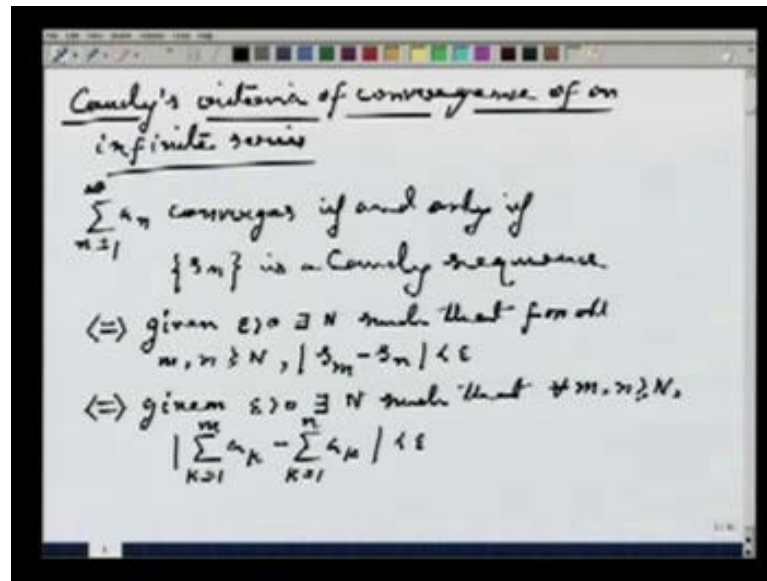 Cauchy's criteria of convergence of an
infinite series
∞
∑ aₙ converges if and only if
n=1
{sₙ} is a Cauchy sequence
<=> given ε>0 ∃ N such that for all
m, n ≥ N, |sₘ - sₙ| < ε
<=> given ε>0 ∃ N such that ∀ m, n ≥ N,
| ∑_{k=1}^{m} aₖ - ∑_{k=1}^{n} aₖ | < ε